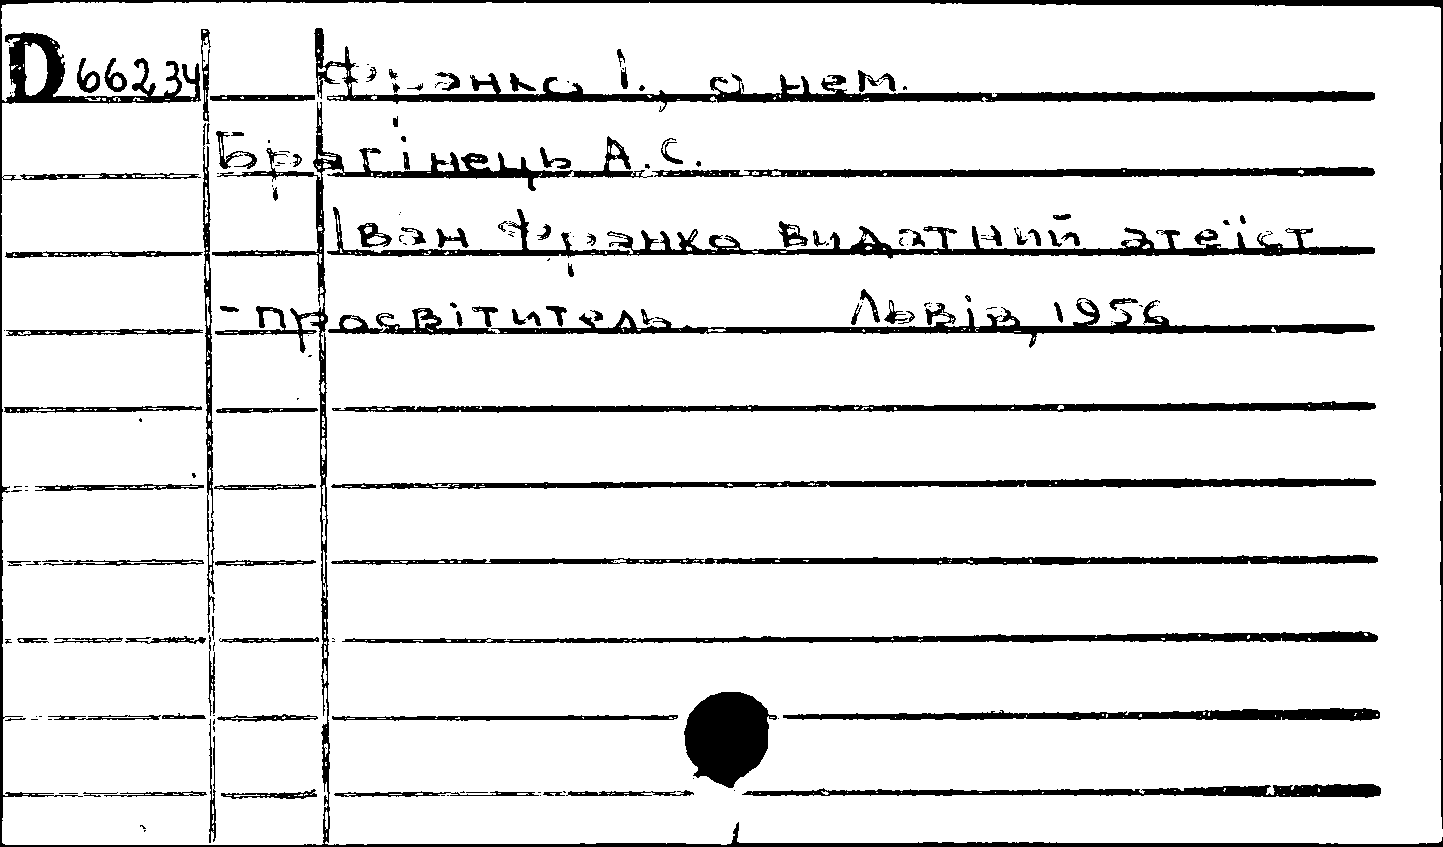 D 66234 Франко І., о нем.
Брагінець А.С.
Іван Франко видатний атеїст
-просвітитель. Львів, 1956